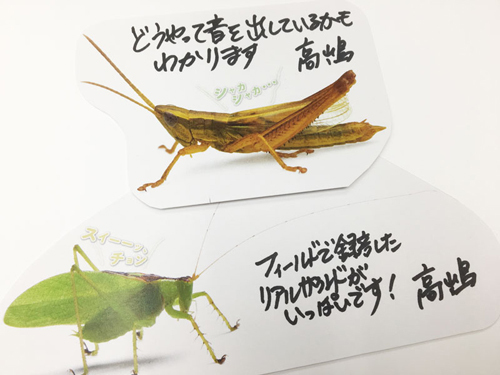 どうやって音を出しているかも
わかります 高嶋
シャカ
シャカ
スイーーーッ、
チョン
フィールドで録音した
リアルサウンドが
いっぱいです！ 高嶋